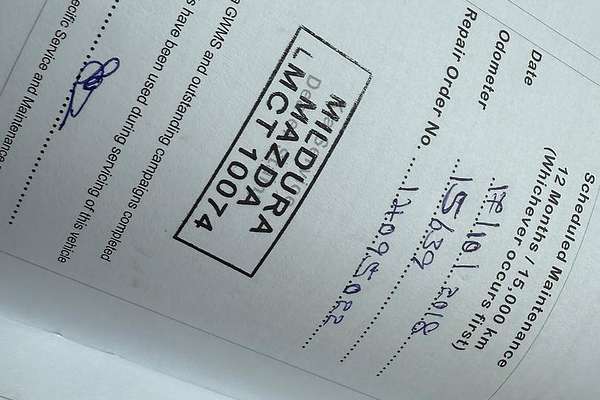 Scheduled Maintenance
12 Months / 15,000 km
(Whichever occurs first)
Date 17/10/2018
Odometer 15639
Repair Order No. 12095022
MILDURA
MAZDA
LMCT 10074
GWMS and outstanding campaigns completed
s have been used during servicing of this vehicle
ecific Service and Maintenance